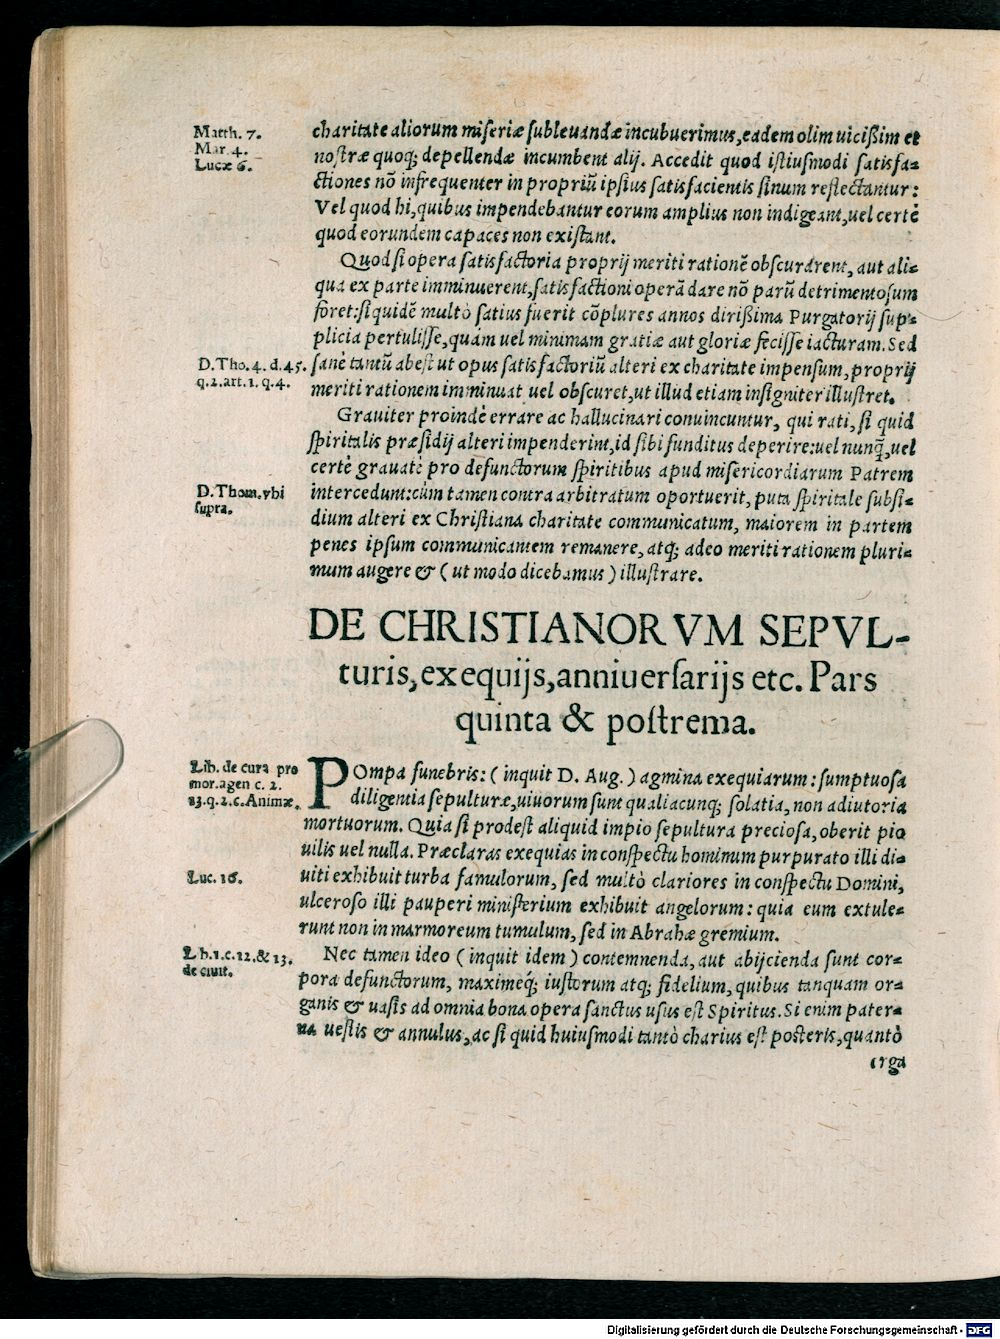 Matth. 7.
Mar. 4.
Lucæ 6.
charitate aliorum miseriæ subleuandæ incubuerimus, eadem olim uicißim et
nostræ quoq; depellendæ incumbent alij. Accedit quod istiusmodi satisfa-
ctiones nõ infrequenter in propriũ ipsius satisfacientis sinum reflectantur:
Vel quod hi, quibus impendebantur eorum amplius non indigeant, uel certè
quod eorundem capaces non existant.
Quod si opera satisfactoria proprij meriti rationē obscurarent, aut ali-
qua ex parte imminuerent, satisfactioni operã dare nõ parũ detrimentosum
foret: siquidē multò satius fuerit cõplures annos dirißima Purgatorij sup-
plicia pertulisse, quàm uel minimam gratiæ aut gloriæ fecisse iacturam. Sed
D. Tho. 4. d. 45.
q. 2. art. 1. q. 4.
sanè tantũ abest ut opus satisfactoriũ alteri ex charitate impensum, proprij
meriti rationem imminuat uel obscuret, ut illud etiam insigniter illustret.
Grauiter proindè errare ac hallucinari conuincuntur, qui rati, si quid
spiritalis præsidij alteri impenderint, id sibi funditus deperire: uel nunq̃, uel
certè grauatè pro defunctorum spiritibus apud misericordiarum Patrem
D. Thom. vbi
supra.
intercedunt: cùm tamen contra arbitratum oportuerit, puta spiritale subsi-
dium alteri ex Christiana charitate communicatum, maiorem in partem
penes ipsum communicantem remanere, atq; adeo meriti rationem pluri-
mum augere & ( ut modo dicebamus ) illustrare.
DE CHRISTIANORVM SEPVL-
turis, exequijs, anniuersarijs etc. Pars
quinta & postrema.
Lib. de cura pro
mor. agen c. 2.
13. q. 2. c. Animæ.
POmpa funebris: ( inquit D. Aug. ) agmina exequiarum: sumptuosa
diligentia sepulturæ, uiuorum sunt qualiacunq; solatia, non adiutoria
mortuorum. Quia si prodest aliquid impio sepultura preciosa, oberit pio
uilis uel nulla. Præclaras exequias in conspectu hominum purpurato illi di-
Luc. 16.
uiti exhibuit turba famulorum, sed multò clariores in conspectu Domini,
ulceroso illi pauperi ministerium exhibuit angelorum: quia eum extule-
runt non in marmoreum tumulum, sed in Abrahæ gremium.
Lib. 1. c. 12. & 13.
de ciuit.
Nec tamen ideo ( inquit idem ) contemnenda, aut abijcienda sunt cor-
pora defunctorum, maximeq́; iustorum atq; fidelium, quibus tanquam or-
ganis & uasis ad omnia bona opera sanctus usus est Spiritus. Si enim pater-
na uestis & annulus, ac si quid huiusmodi tantò charius est posteris, quantò
erga
Digitalisierung gefördert durch die Deutsche Forschungsgemeinschaft - DFG